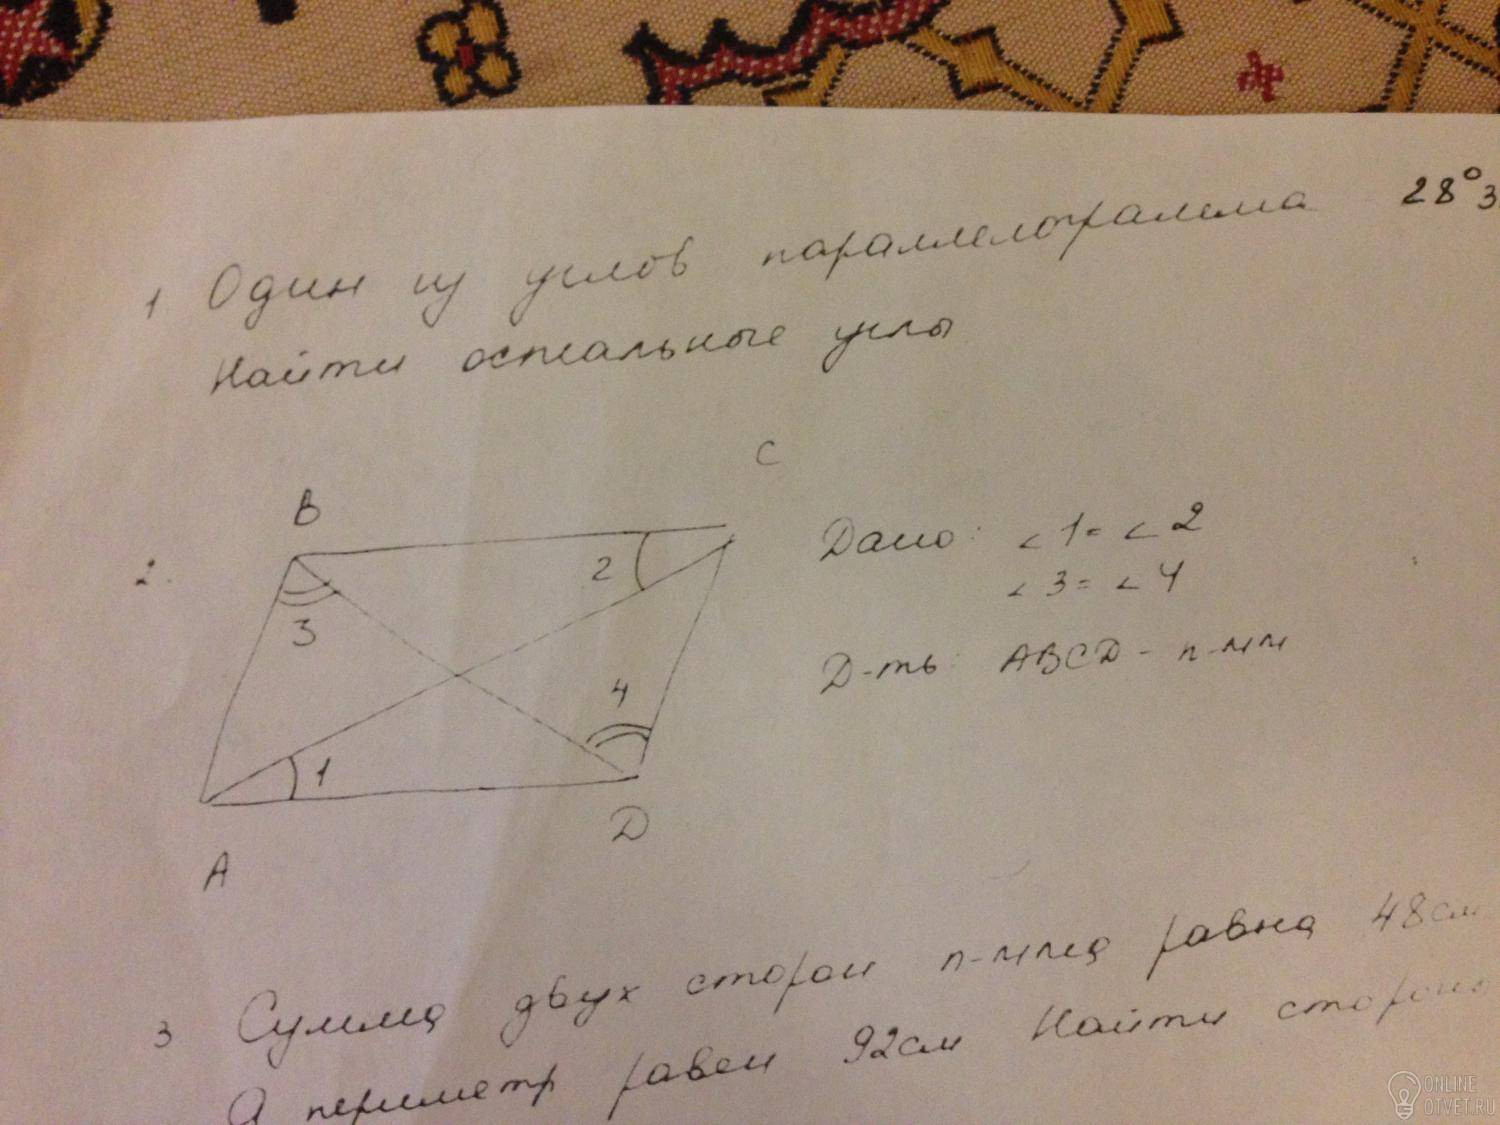 1 Один из углов параллелограмма 28°3
Найти остальные углы
2.
B
C
2
3
4
1
A
D
Дано: ∠1=∠2
∠3=∠4
Д-ть: ABCD - п-мм
3 Сумма двух сторон п-мма равна 48см
А периметр равен 92см Найти стороны
ONLINE
OTVET.RU